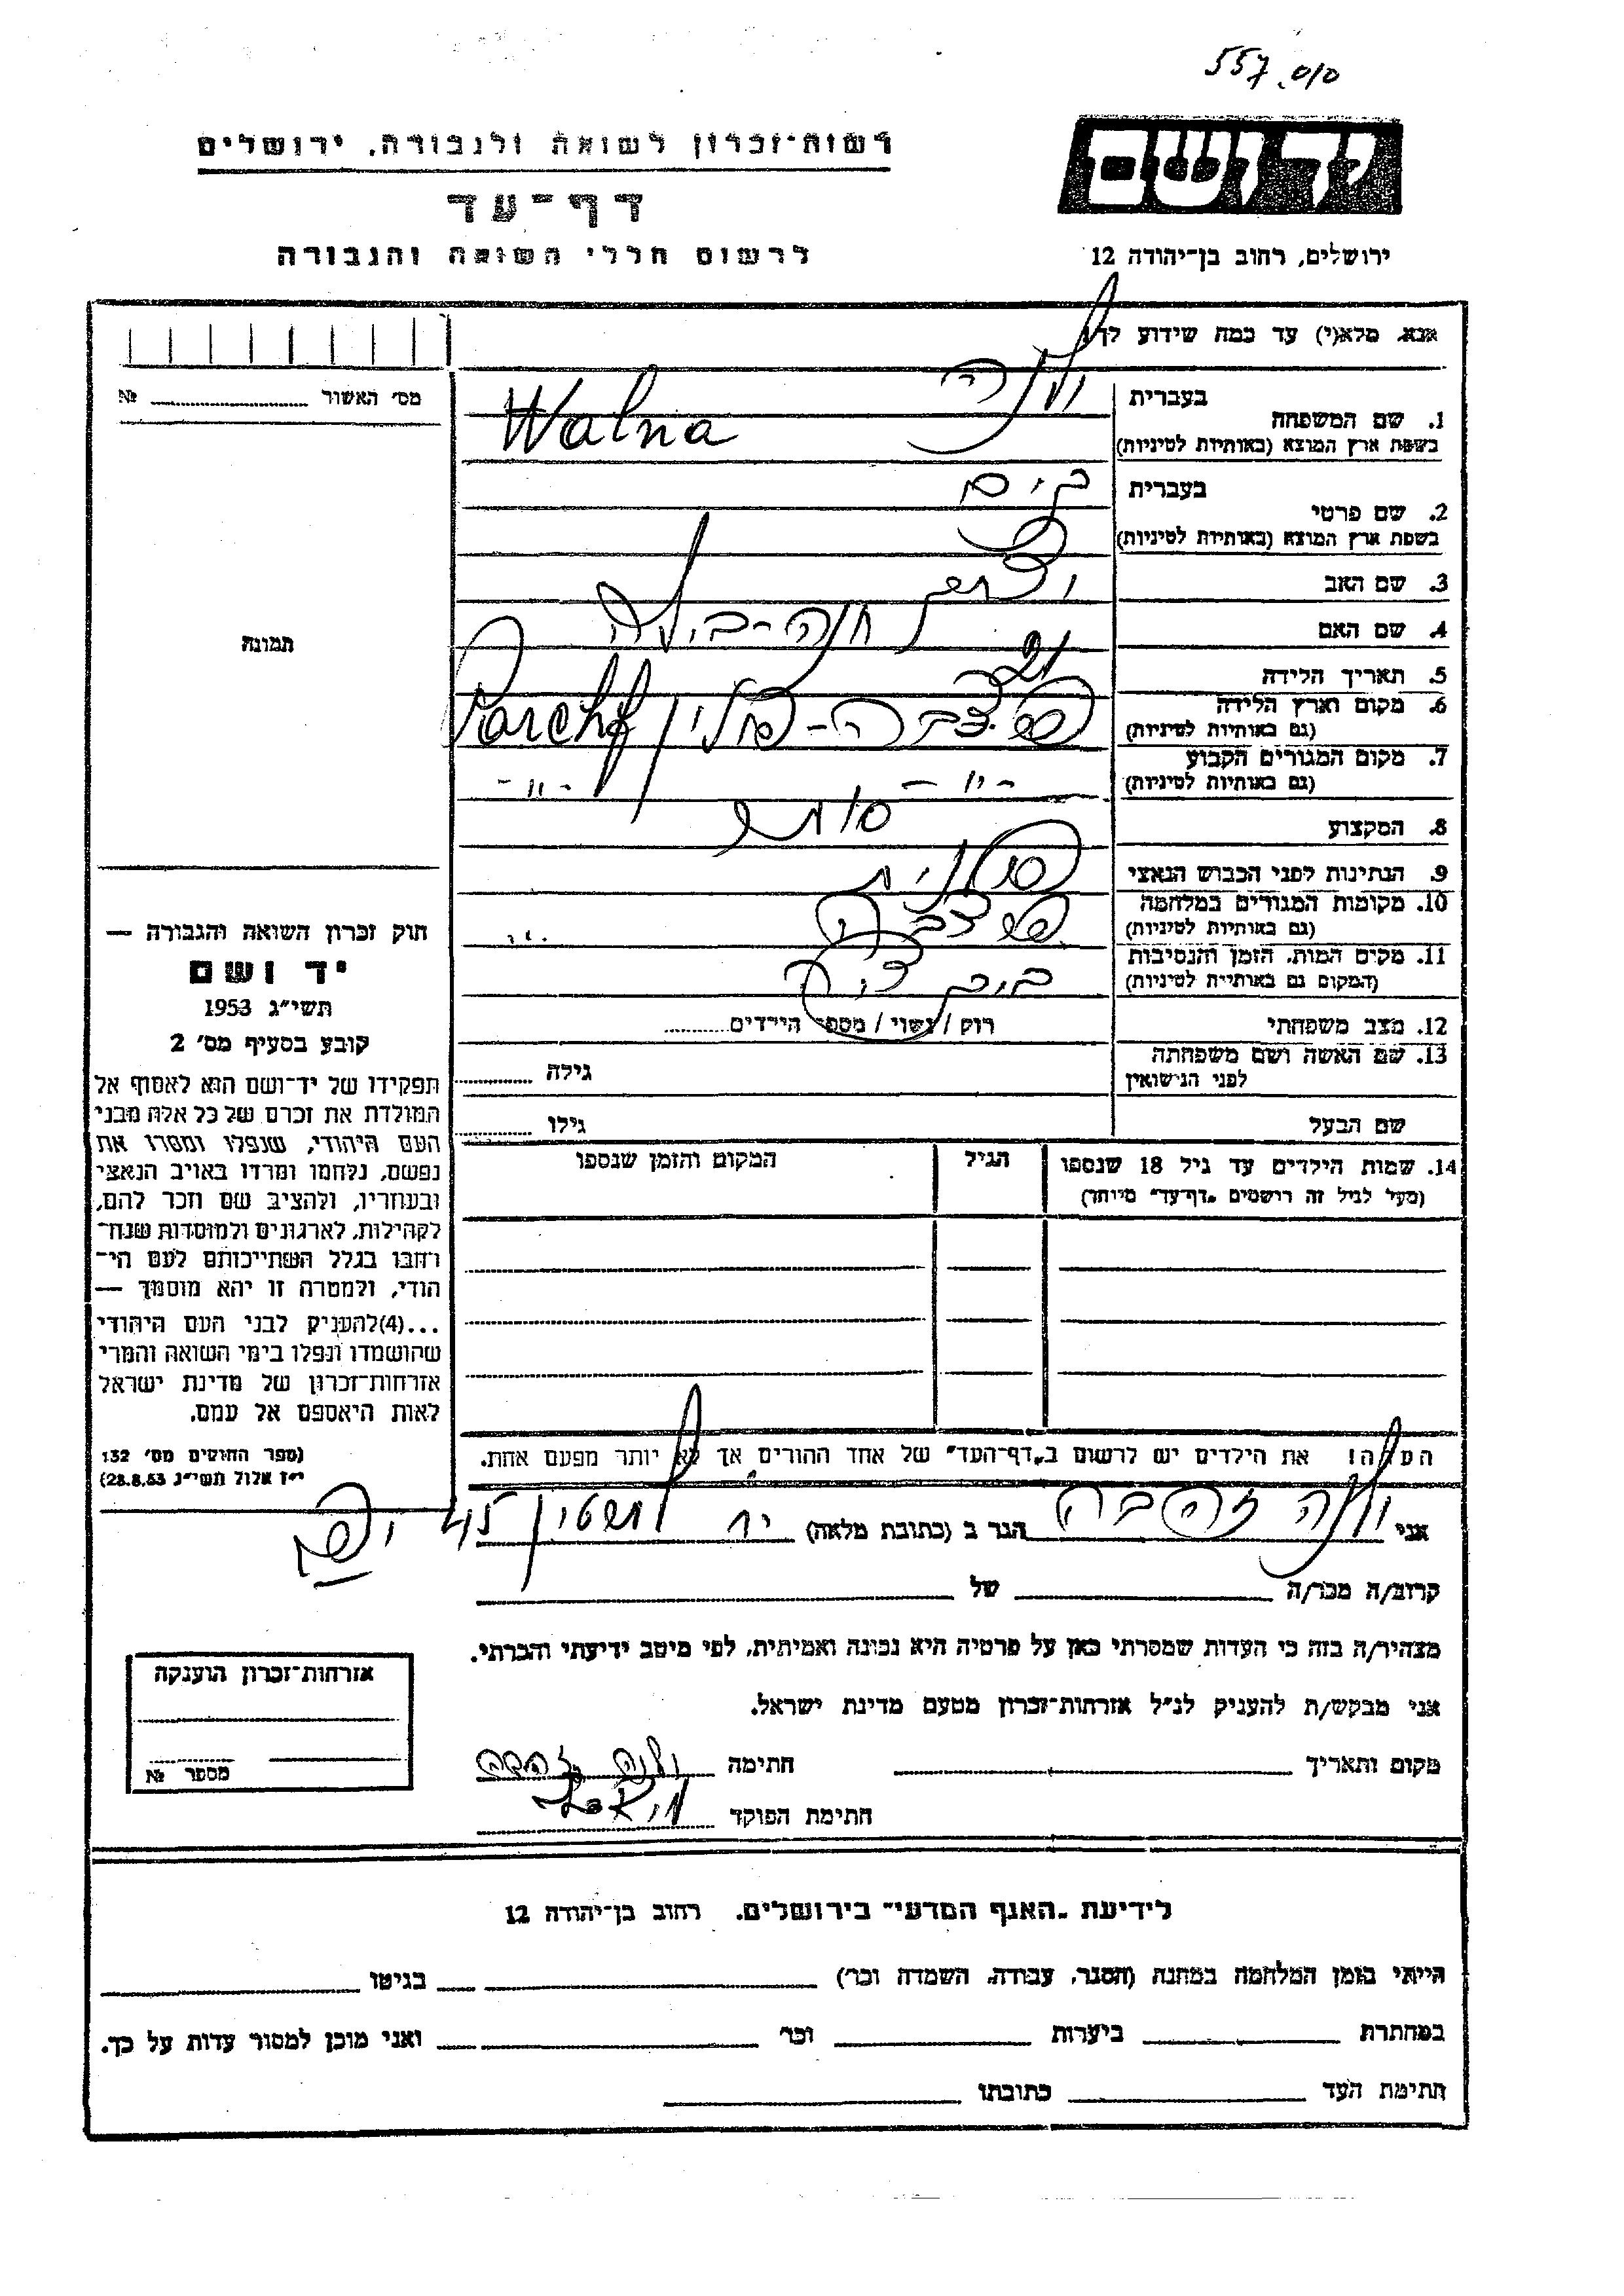 557.010
רשות־זכרון לשואה ולגבורה, ירושלים
יד ושם
דף־עד
לרשום חללי השואה והגבורה
ירושלים, רחוב בן־יהודה 12
אנא, מלא(י) עד כמה שידוע לך!
מס׳ האשור №
1. שם המשפחה
בעברית
ולנה
בשפת ארץ המוצא (באותיות לטיניות)
Walna
2. שם פרטי
בעברית
חיים
בשפת ארץ המוצא (באותיות לטיניות)
3. שם האב
4. שם האם
חנה-ביילה
5. תאריך הלידה
21
6. מקום וארץ הלידה
(גם באותיות לטיניות)
פולין
7. מקום המגורים הקבוע
(גם באותיות לטיניות)
-"- -"-
8. המקצוע
סוחר
9. הנתינות לפני הכבוש הנאצי
פולנית
10. מקומות המגורים במלחמה
(גם באותיות לטיניות)
11. מקום המות, הזמן והנסיבות
(המקום גם באותיות לטיניות)
12. מצב משפחתי
רוק / נשוי / מספר הילדים
13. שם האשה ושם משפחתה
לפני הנישואין
גילה
שם הבעל
גילו
תמונה
חוק זכרון השואה והגבורה —
יד ושם
תשי״ג 1953
קובע בסעיף מס׳ 2
תפקידו של יד־ושם הוא לאסוף אל
המולדת את זכרם של כל אלה מבני
העם היהודי, שנפלו ומסרו את
נפשם, נלחמו ומרדו באויב הנאצי
ובעוזריו, ולהציב שם וזכר להם,
לקהילות, לארגונים ולמוסדות שנח־
רבו בגלל השתייכותם לעם הי־
הודי, ולמטרה זו יהא מוסמך —
...(4)להעניק לבני העם היהודי
שהושמדו ונפלו בימי השואה והמרי
אזרחות־זכרון של מדינת ישראל
לאות היאספם אל עמם.
(ספר החוקים מס׳ 132
י״ז אלול תשי״ג 28.8.53)
14. שמות הילדים עד גיל 18 שנספו
(מעל לגיל זה רושמים „דף־עד״ מיוחד)
הגיל
המקום והזמן שנספו
העלהו את הילדים יש לרשום ב„דף־העד״ של אחד ההורים אך לא יותר מפעם אחת.
אני ולנה זהבה הגר ב (כתובת מלאה) יפו
קרוב/ה מכר/ה של
מצהיר/ה בזה כי העדות שמסרתי כאן על פרטיה היא נכונה ואמיתית, לפי מיטב ידיעתי והכרתי.
אני מבקש/ת להעניק לנ״ל אזרחות־זכרון מטעם מדינת ישראל.
מקום ותאריך חתימה ולנה זהבה
חתימת הפוקד
אזרחות־זכרון הוענקה
מספר №
לידיעת „האגף המדעי״ בירושלים. רחוב בן־יהודה 12
הייתי בזמן המלחמה במחנה (הסגר, עבודה, השמדה וכר׳) בגיטו
במחתרת ביערות וכר׳ ואני מוכן למסור עדות על כך.
חתימת העד כתובתו